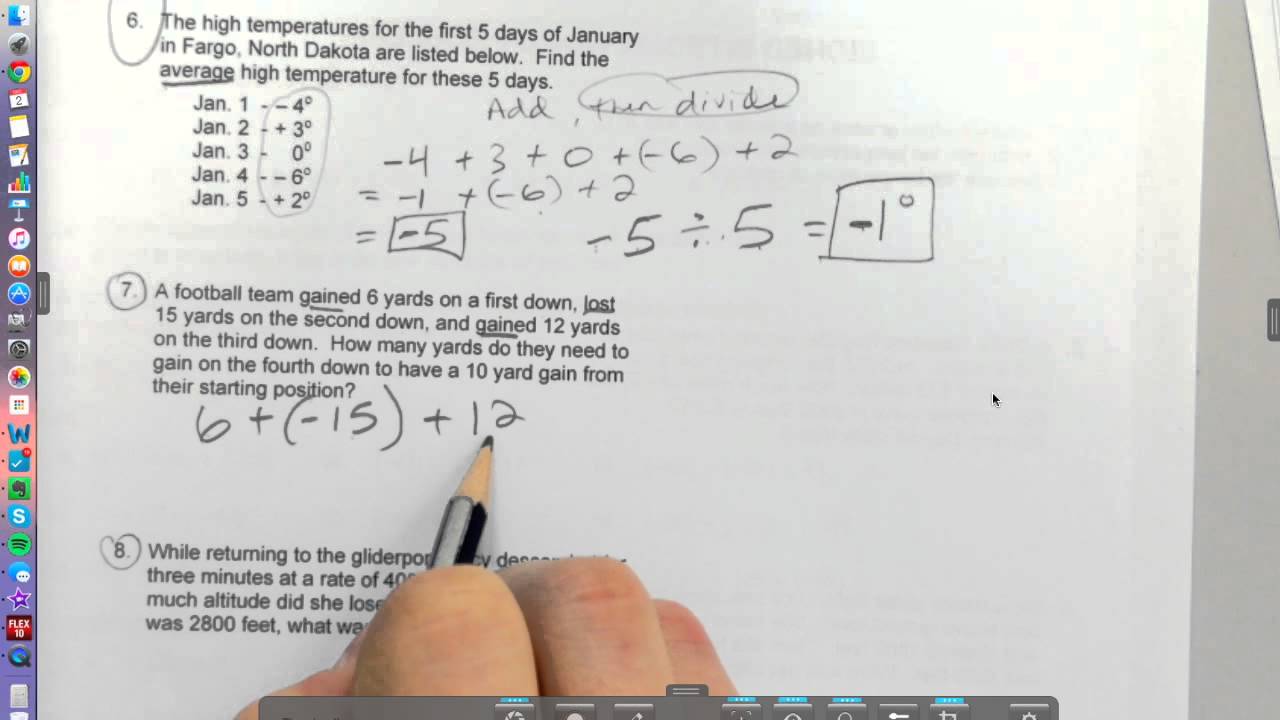 6. The high temperatures for the first 5 days of January
in Fargo, North Dakota are listed below. Find the
average high temperature for these 5 days.
Jan. 1 - - 4°
Jan. 2 - + 3°
Jan. 3 - 0°
Jan. 4 - - 6°
Jan. 5 - + 2°
Add, then divide
-4 + 3 + 0 + (-6) + 2
= -1 + (-6) + 2
= -5
-5 ÷ 5 = -1°
7. A football team gained 6 yards on a first down, lost
15 yards on the second down, and gained 12 yards
on the third down. How many yards do they need to
gain on the fourth down to have a 10 yard gain from
their starting position?
6 + (-15) + 12
8. While returning to the
three minutes at a rate of
much altitude did she lose
was 2800 feet, what
2
W
S
FLEX
10